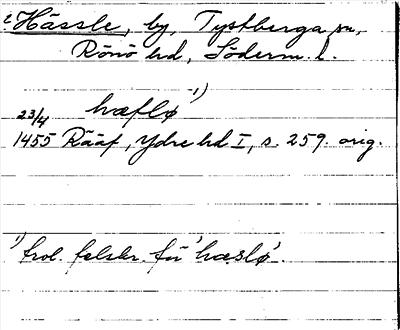 Hässle, by, Tystberga sn,
Rönö hd, Söderm. l.
hæflø 1)
23/4
1455 Rääf, Ydre hd I, s. 259. orig.
1) trol. felskr. för 'hæslø'.